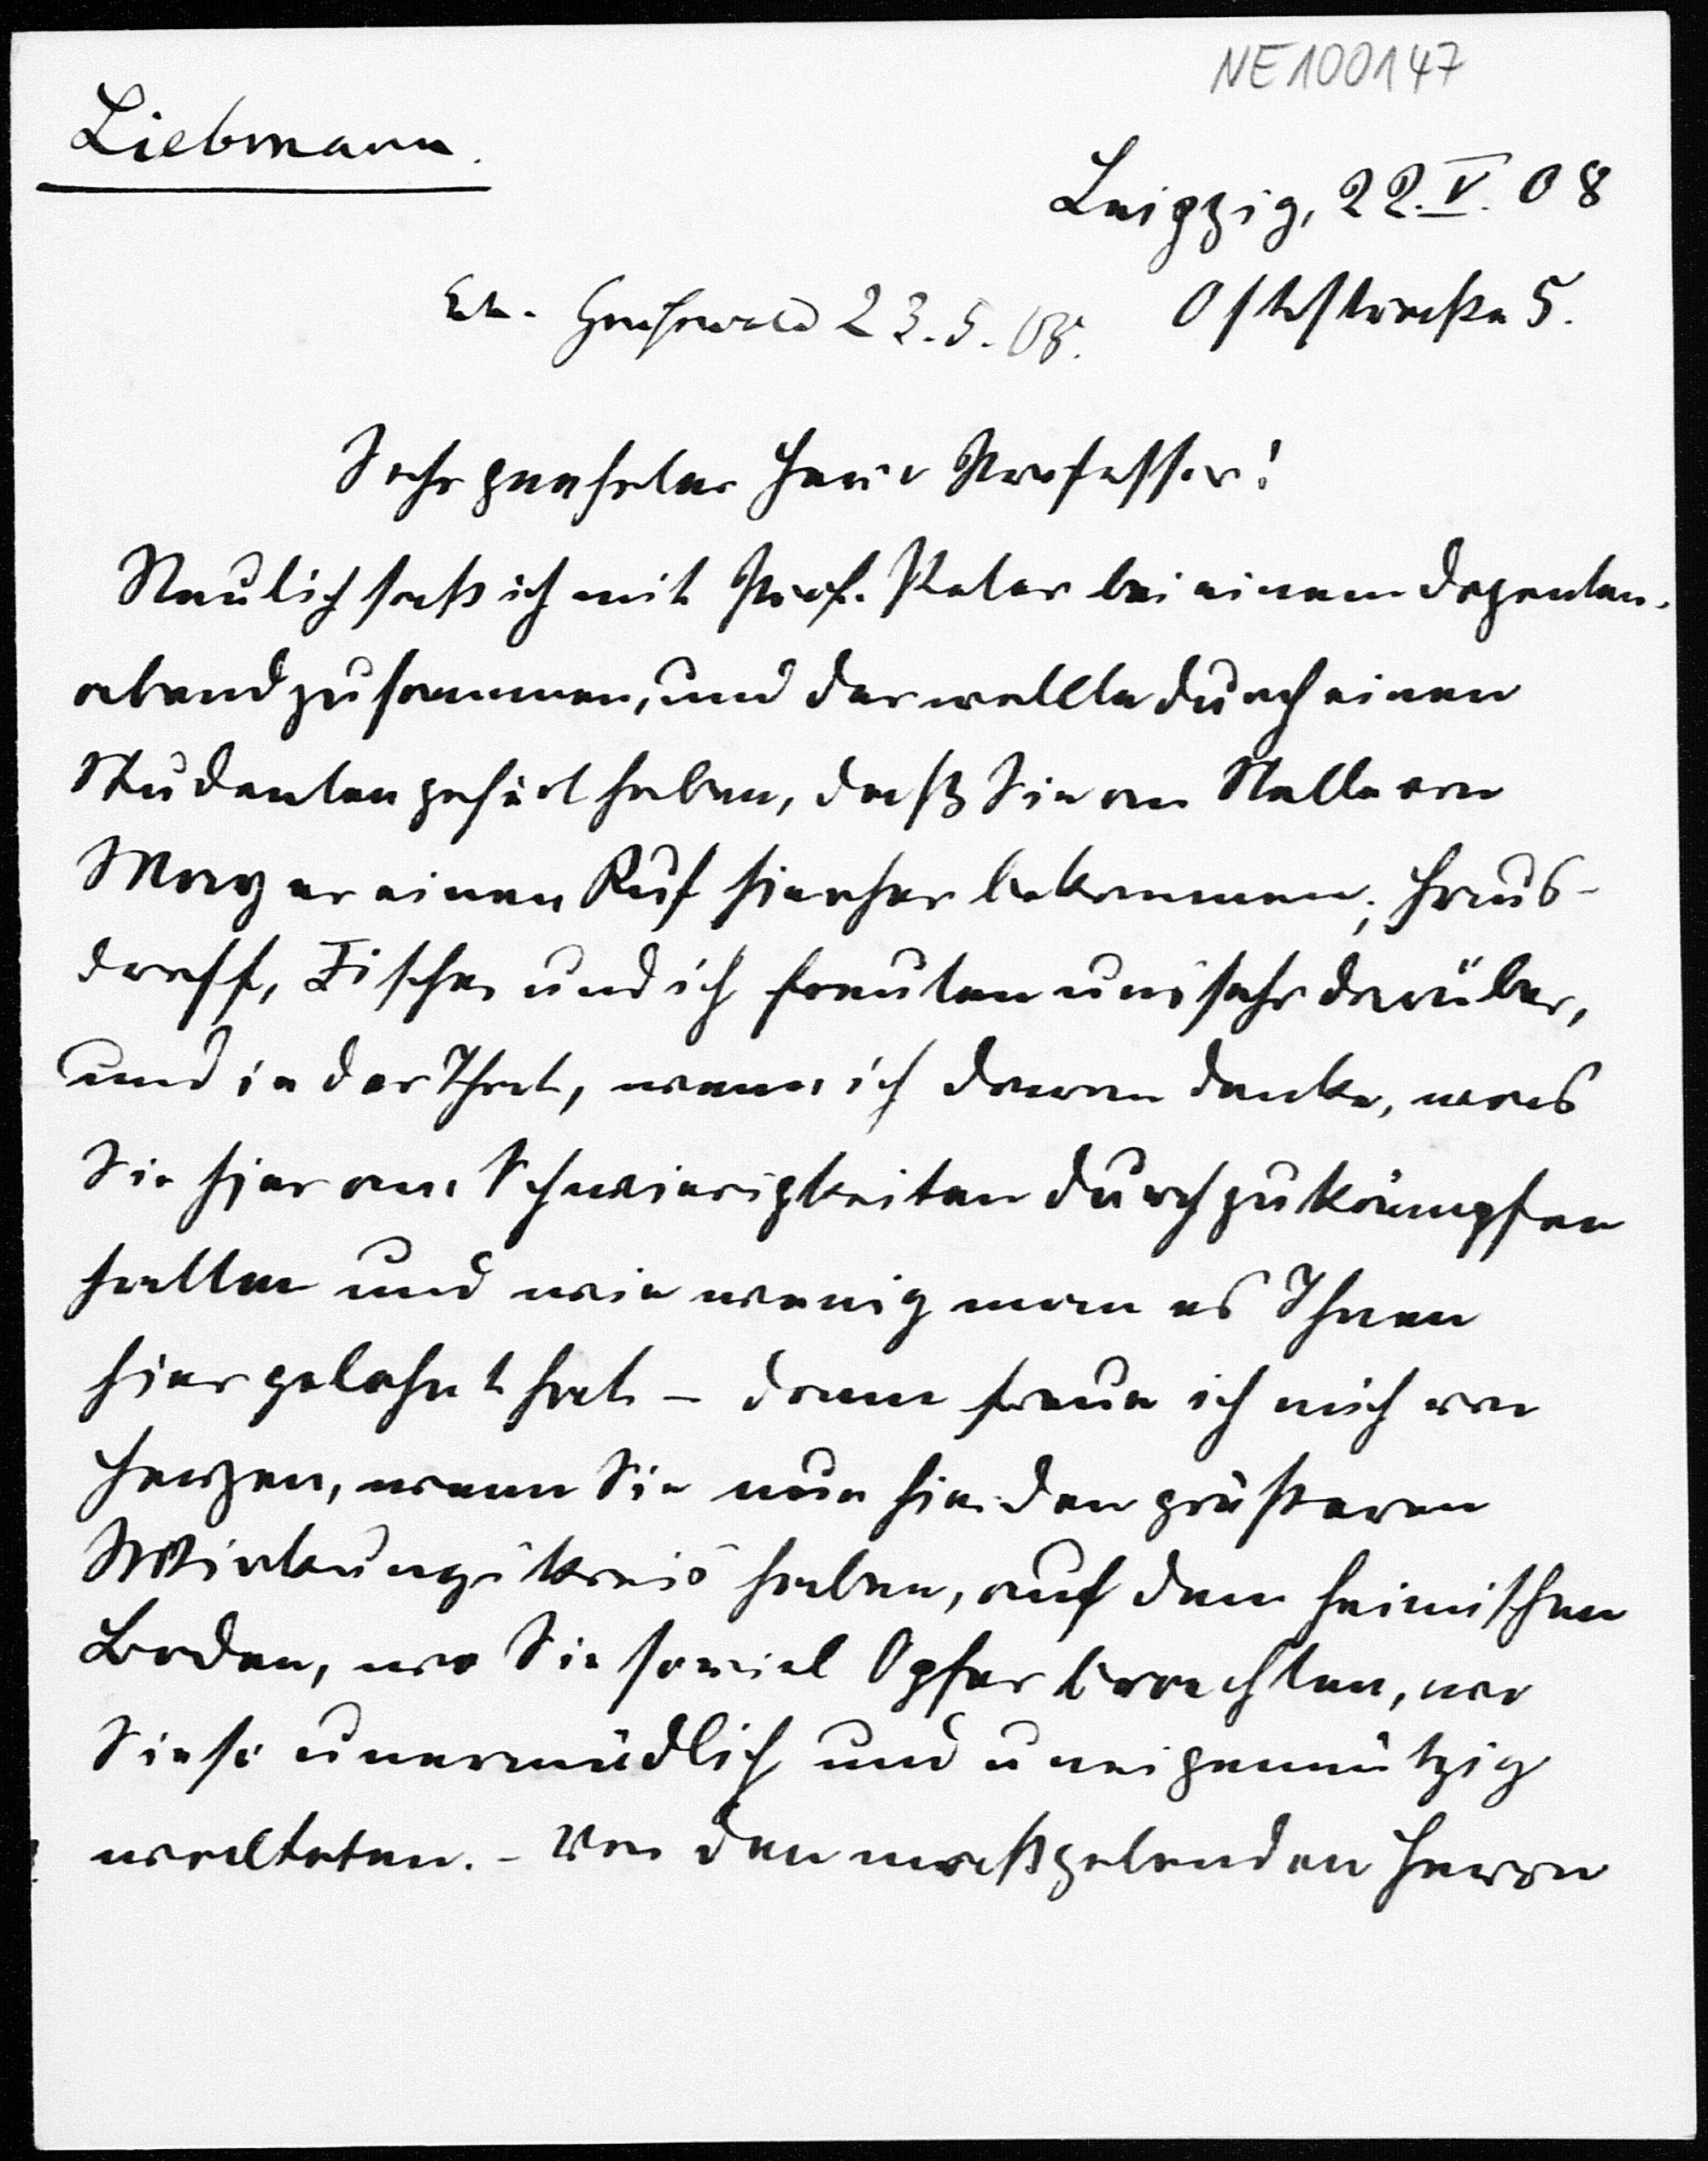 NE100147
Liebmann.
Leipzig, 22.V.08
Erh. Greifswald 23.5.08.
Oststraße 5.
Sehr geehrter Herr Professor!
Neulich saß ich mit Prof. Peter bei einem Dozenten-
abend zusammen, und der wollte durch einen
Studenten gehört haben, daß Sie an Stelle von
Mayer einen Ruf hierher bekommen; Haus-
dorff, Fischer und ich freuten uns sehr darüber,
und in der That, wenn ich daran denke, was
Sie hier an Schwierigkeiten durchzukämpfen
hatten und wie wenig man es Ihnen
hier gelohnt hat – dann freue ich mich von
Herzen, wenn Sie nun hier den größeren
Wirkungskreis haben, auf dem heimischen
Boden, wo Sie soviel Opfer brachten, wo
Sie so unermüdlich und uneigennützig
walteten. – Von den maßgebenden Herrn